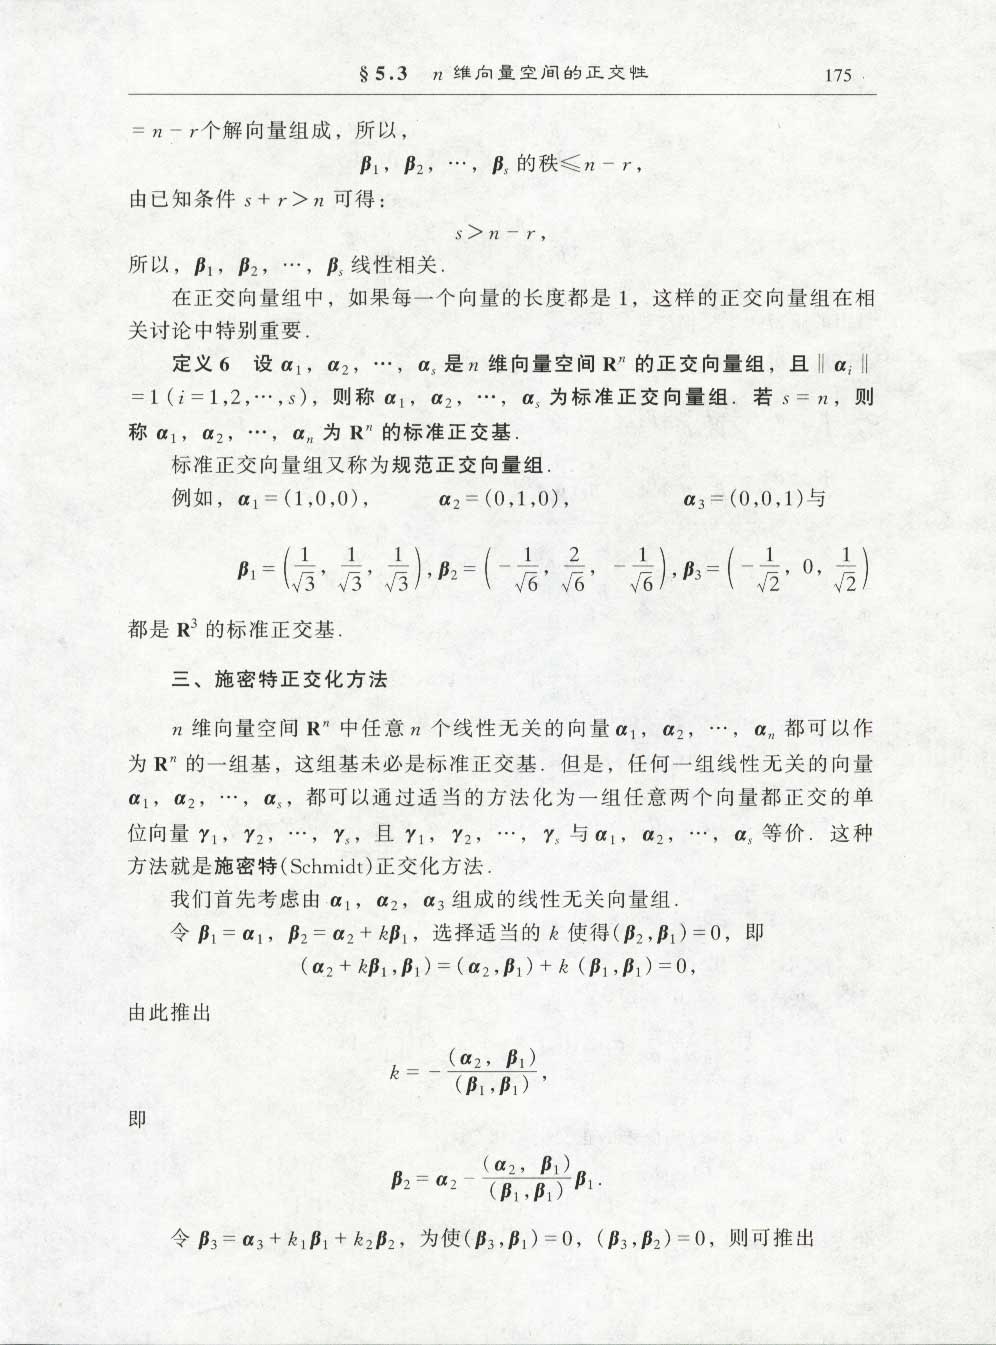 §5.3 n 维向量空间的正交性 175
= n − r个解向量组成，所以，
β₁，β₂，…，βₛ 的秩≤n − r，
由已知条件 s + r＞n 可得：
s＞n − r，
所以，β₁，β₂，…，βₛ 线性相关.
在正交向量组中，如果每一个向量的长度都是 1，这样的正交向量组在相
关讨论中特别重要.
定义 6 设 α₁，α₂，…，αₛ 是 n 维向量空间 Rⁿ 的正交向量组，且‖αᵢ‖
=1 (i =1,2,…,s)，则称 α₁，α₂，…，αₛ 为标准正交向量组. 若 s = n，则
称 α₁，α₂，…，αₙ 为 Rⁿ 的标准正交基.
标准正交向量组又称为规范正交向量组.
例如，α₁=(1,0,0)， α₂=(0,1,0)， α₃=(0,0,1)与
β₁=(1/√3, 1/√3, 1/√3), β₂=(−1/√6, 2/√6, −1/√6), β₃=(−1/√2, 0, 1/√2)
都是 R³ 的标准正交基.
三、施密特正交化方法
n 维向量空间 Rⁿ 中任意 n 个线性无关的向量 α₁，α₂，…，αₙ 都可以作
为 Rⁿ 的一组基，这组基未必是标准正交基. 但是，任何一组线性无关的向量
α₁，α₂，…，αₛ，都可以通过适当的方法化为一组任意两个向量都正交的单
位向量 γ₁，γ₂，…，γₛ，且 γ₁，γ₂，…，γₛ 与 α₁，α₂，…，αₛ 等价. 这种
方法就是施密特(Schmidt)正交化方法.
我们首先考虑由 α₁，α₂，α₃ 组成的线性无关向量组.
令 β₁=α₁，β₂=α₂+kβ₁，选择适当的 k 使得(β₂,β₁)=0，即
(α₂+kβ₁,β₁)=(α₂,β₁)+k (β₁,β₁)=0，
由此推出
k = −(α₂，β₁)/(β₁,β₁)，
即
β₂=α₂−(α₂，β₁)/(β₁,β₁)β₁.
令 β₃=α₃+k₁β₁+k₂β₂，为使(β₃,β₁)=0，(β₃,β₂)=0，则可推出